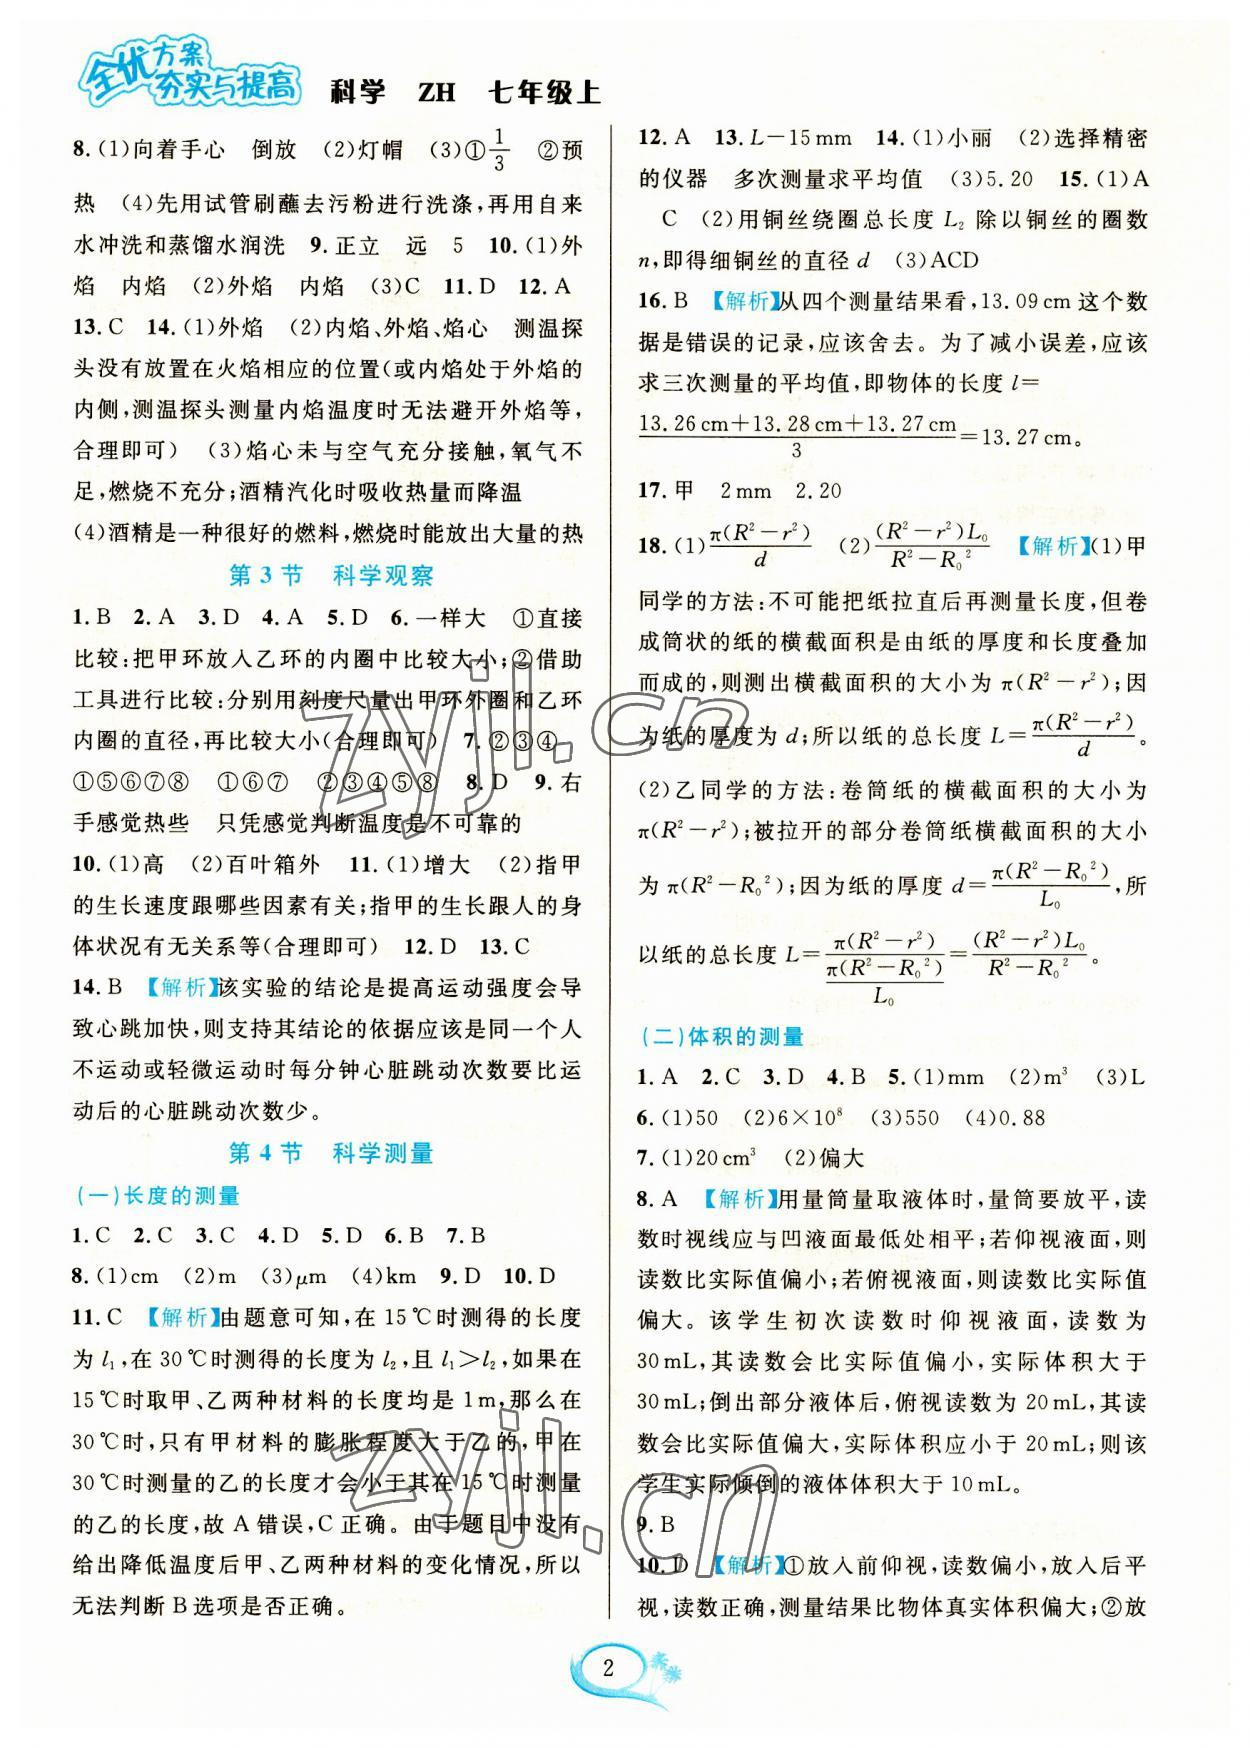 全优方案
夯实与提高
科学 ZH 七年级上
8.(1)向着手心 倒放 (2)灯帽 (3)①1/3 ②预
热 (4)先用试管刷蘸去污粉进行洗涤,再用自来
水冲洗和蒸馏水润洗 9.正立 远 5 10.(1)外
焰 内焰 (2)外焰 内焰 (3)C 11.D 12.A
13.C 14.(1)外焰 (2)内焰、外焰、焰心 测温探
头没有放置在火焰相应的位置(或内焰处于外焰的
内侧,测温探头测量内焰温度时无法避开外焰等,
合理即可) (3)焰心未与空气充分接触,氧气不
足,燃烧不充分;酒精汽化时吸收热量而降温
(4)酒精是一种很好的燃料,燃烧时能放出大量的热
第3节 科学观察
1.B 2.A 3.D 4.A 5.D 6.一样大 ①直接
比较:把甲环放入乙环的内圈中比较大小;②借助
工具进行比较:分别用刻度尺量出甲环外圈和乙环
内圈的直径,再比较大小(合理即可) 7.②③④
①⑤⑥⑦⑧ ①⑥⑦ ②③④⑤⑧ 8.D 9.右
手感觉热些 只凭感觉判断温度是不可靠的
10.(1)高 (2)百叶箱外 11.(1)增大 (2)指甲
的生长速度跟哪些因素有关;指甲的生长跟人的身
体状况有无关系等(合理即可) 12.D 13.C
14.B 【解析】该实验的结论是提高运动强度会导
致心跳加快,则支持其结论的依据应该是同一个人
不运动或轻微运动时每分钟心脏跳动次数要比运
动后的心脏跳动次数少。
第4节 科学测量
(一)长度的测量
1.C 2.C 3.C 4.D 5.D 6.B 7.B
8.(1)cm (2)m (3)μm (4)km 9.D 10.D
11.C 【解析】由题意可知,在15℃时测得的长度
为l₁,在30℃时测得的长度为l₂,且l₁>l₂,如果在
15℃时取甲、乙两种材料的长度均是1m,那么在
30℃时,只有甲材料的膨胀程度大于乙的,甲在
30℃时测量的乙的长度才会小于其在15℃时测量
的乙的长度,故A错误,C正确。由于题目中没有
给出降低温度后甲、乙两种材料的变化情况,所以
无法判断B选项是否正确。
12.A 13.L-15mm 14.(1)小丽 (2)选择精密
的仪器 多次测量求平均值 (3)5.20 15.(1)A
C (2)用铜丝绕圈总长度L₂除以铜丝的圈数
n,即得细铜丝的直径d (3)ACD
16.B 【解析】从四个测量结果看,13.09cm这个数
据是错误的记录,应该舍去。为了减小误差,应该
求三次测量的平均值,即物体的长度l=
(13.26cm+13.28cm+13.27cm)/3=13.27cm。
17.甲 2mm 2.20
18.(1)π(R²-r²)/d (2)(R²-r²)L₀/(R²-R₀²) 【解析】(1)甲
同学的方法:不可能把纸拉直后再测量长度,但卷
成筒状的纸的横截面积是由纸的厚度和长度叠加
而成的,则测出横截面积的大小为π(R²-r²);因
为纸的厚度为d;所以纸的总长度L=π(R²-r²)/d。
(2)乙同学的方法:卷筒纸的横截面积的大小为
π(R²-r²);被拉开的部分卷筒纸横截面积的大小
为π(R²-R₀²);因为纸的厚度d=π(R²-R₀²)/L₀,所
以纸的总长度L=π(R²-r²)/(π(R²-R₀²)/L₀)=(R²-r²)L₀/(R²-R₀²)。
(二)体积的测量
1.A 2.C 3.D 4.B 5.(1)mm (2)m³ (3)L
6.(1)50 (2)6×10⁸ (3)550 (4)0.88
7.(1)20cm³ (2)偏大
8.A 【解析】用量筒量取液体时,量筒要放平,读
数时视线应与凹液面最低处相平;若仰视液面,则
读数比实际值偏小;若俯视液面,则读数比实际值
偏大。该学生初次读数时仰视液面,读数为
30mL,其读数会比实际值偏小,实际体积大于
30mL;倒出部分液体后,俯视读数为20mL,其读
数会比实际值偏大,实际体积应小于20mL;则该
学生实际倾倒的液体体积大于10mL。
9.B
10.D 【解析】①放入前仰视,读数偏小,放入后平
视,读数正确,测量结果比物体真实体积偏大;②放
2
zyjl.cn
zyjl.cn